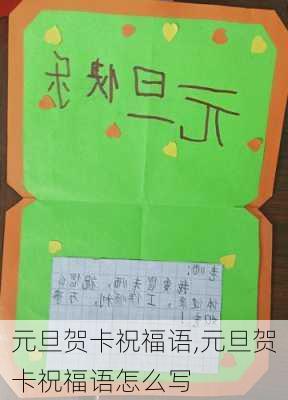 元旦快乐
老师:
老师,祝您
工作顺利,万事
如意!
元旦贺卡祝福语,元旦贺
卡祝福语怎么写